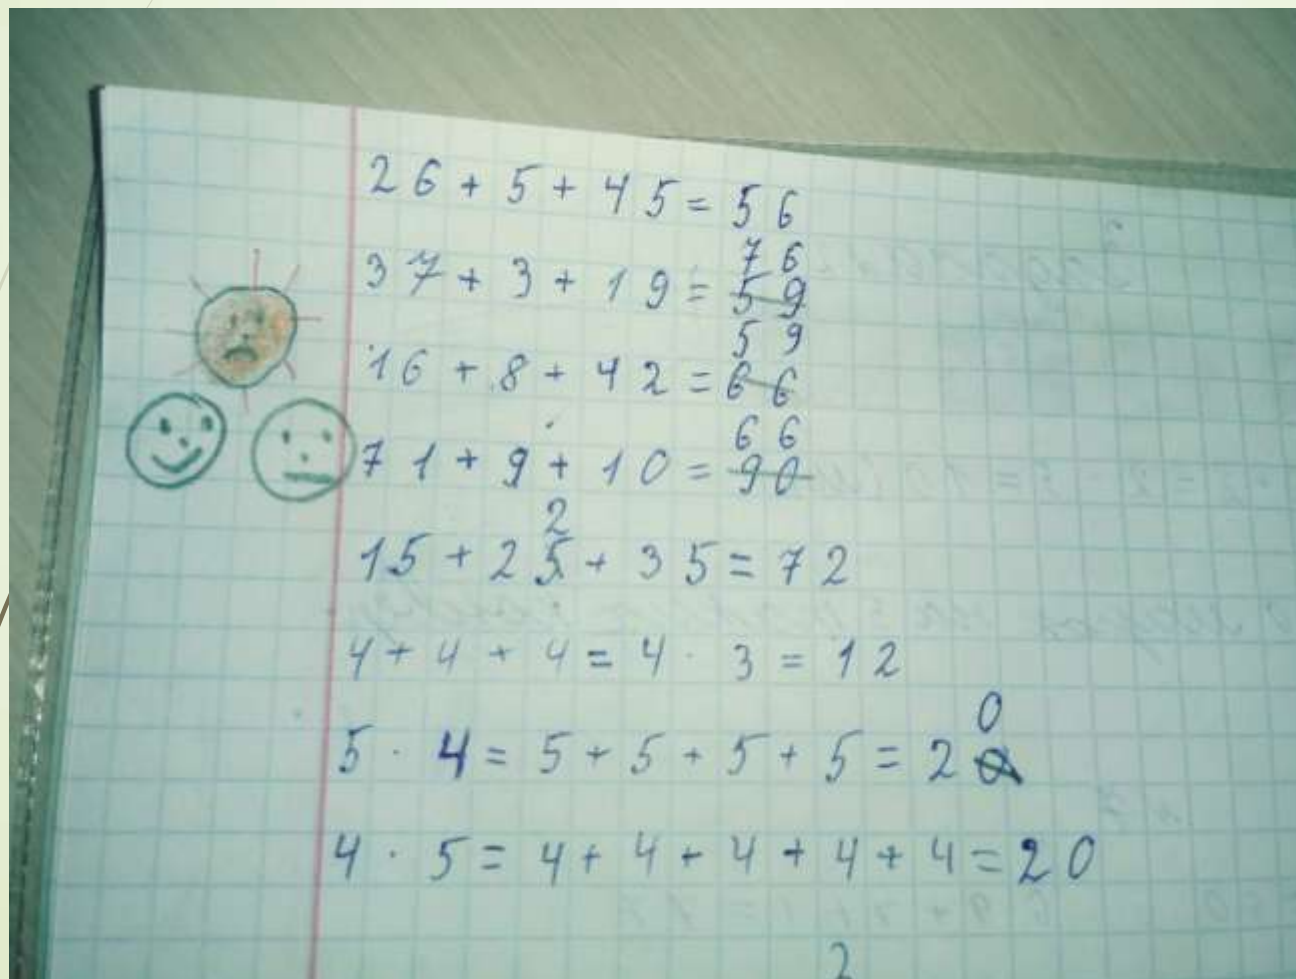 26+5+45=56
76
37+3+19=59
59
16+8+42=66
66
71+9+10=90
2
15+25+35=72
4+4+4=4·3=12
0
5·4=5+5+5+5=20
4·5=4+4+4+4+4=20
2